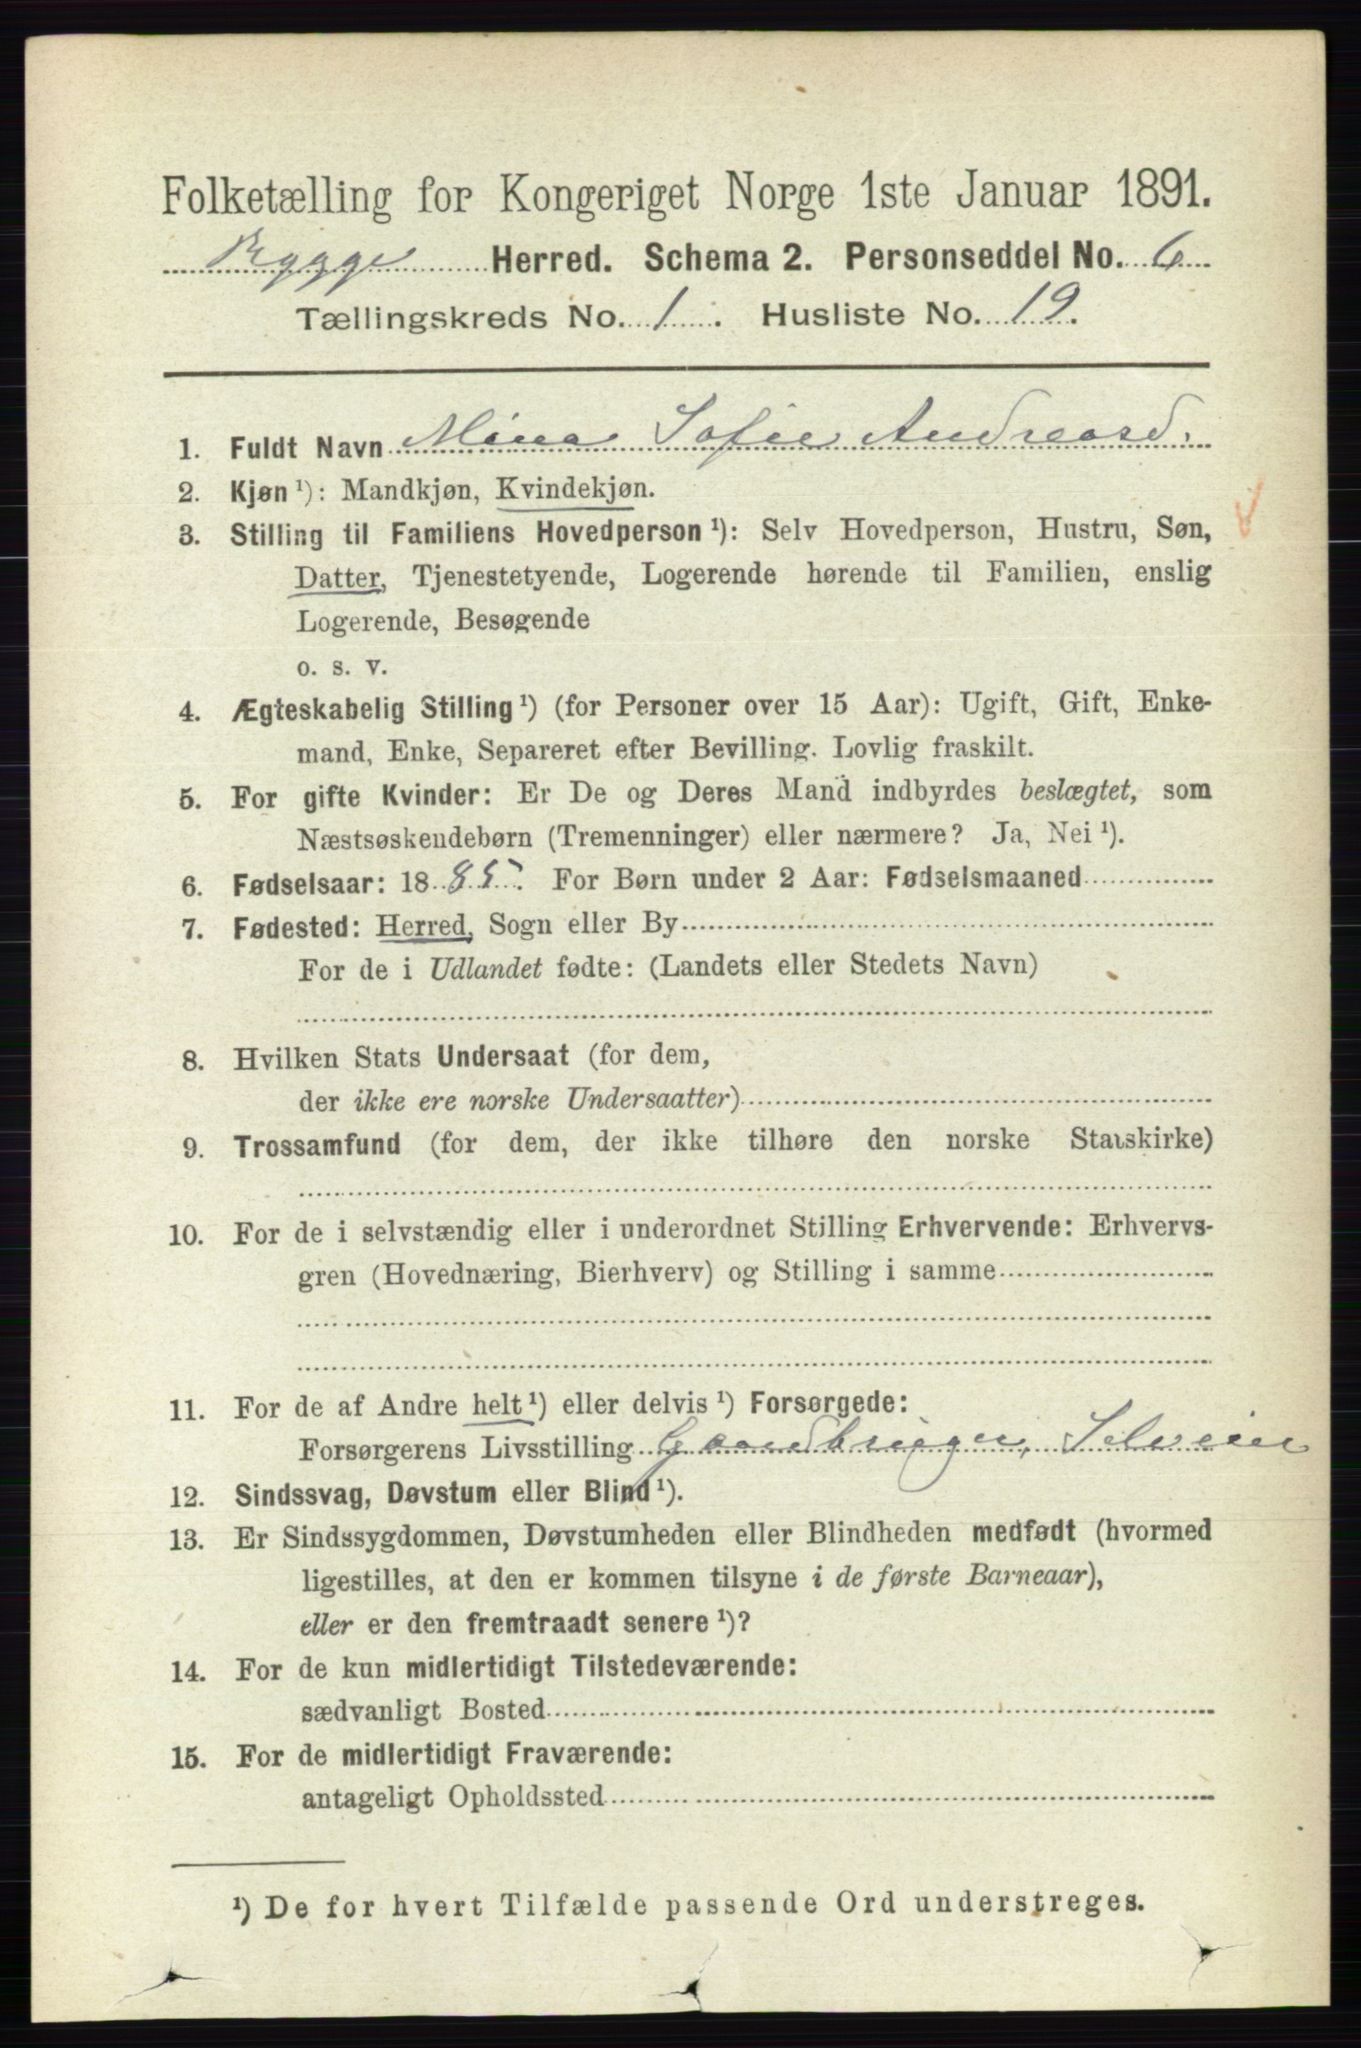 Folketælling for Kongeriget Norge 1ste Januar 1891.
Rygge Herred. Schema 2. Personseddel No. 6
Tællingskreds No. 1. Husliste No. 19.
1. Fuldt Navn Mina Sofie Andreasd.
2. Kjøn ¹): Mandkjøn, Kvindekjøn.
3. Stilling til Familiens Hovedperson ¹): Selv Hovedperson, Hustru, Søn,
Datter, Tjenestetyende, Logerende hørende til Familien, enslig
Logerende, Besøgende
o. s. v.
4. Ægteskabelig Stilling ¹) (for Personer over 15 Aar): Ugift, Gift, Enke-
mand, Enke, Separeret efter Bevilling. Lovlig fraskilt.
5. For gifte Kvinder: Er De og Deres Mand indbyrdes beslægtet, som
Næstsøskendebørn (Tremenninger) eller nærmere? Ja, Nei ¹).
6. Fødselsaar: 1885. For Børn under 2 Aar: Fødselsmaaned
7. Fødested: Herred, Sogn eller By
For de i Udlandet fødte: (Landets eller Stedets Navn)
8. Hvilken Stats Undersaat (for dem,
der ikke ere norske Undersaatter)
9. Trossamfund (for dem, der ikke tilhøre den norske Statskirke)
10. For de i selvstændig eller i underordnet Stilling Erhvervende: Erhvervs-
gren (Hovednæring, Bierhverv) og Stilling i samme
11. For de af Andre helt ¹) eller delvis ¹) Forsørgede:
Forsørgerens Livsstilling Gaardbruger, Selveier
12. Sindssvag, Døvstum eller Blind ¹).
13. Er Sindssygdommen, Døvstumheden eller Blindheden medfødt (hvormed
ligestilles, at den er kommen tilsyne i de første Barneaar),
eller er den fremtraadt senere ¹)?
14. For de kun midlertidigt Tilstedeværende:
sædvanligt Bosted
15. For de midlertidigt Fraværende:
antageligt Opholdssted
¹) De for hvert Tilfælde passende Ord understreges.